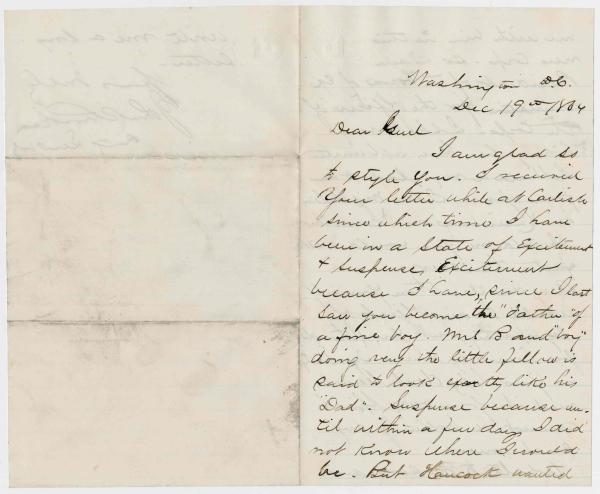 write me a long
letter.
Yours truly
Washington D.C.
Dec 19th 1864
Dear Genl
I am glad so
to style you. I received
Your letter while at Carlisle
since which time I have
been in a State of Excitement
& Suspense, Excitement
because I have, since I last
saw you become the "Father" of
a fine boy. Mrs B and "boy"
doing very the little fellow is
said to look exactly like his
"Dad". Suspense because un-
til within a few days I did
not Know where I would
be. But Hancock wanted